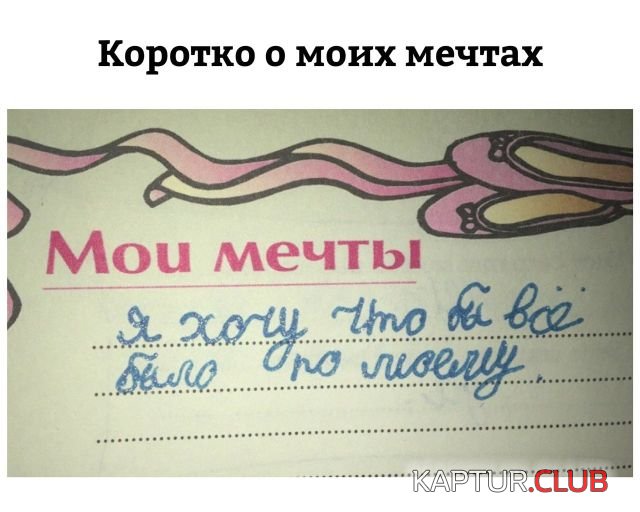 Коротко о моих мечтах
Мои мечты
Я хочу Что бы всё
было по моему.
KAPTUR.CLUB